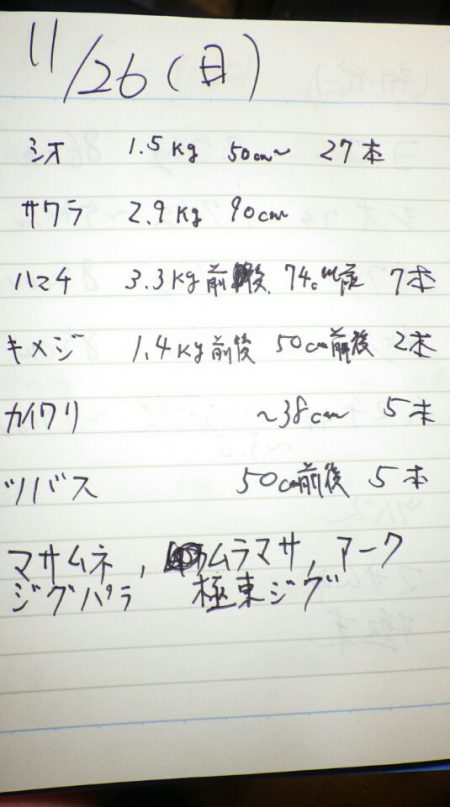 11/26(日)
シオ 1.5kg 50cm~ 27本
サワラ 2.9kg 90cm
ハマチ 3.3kg前後 74cm前後 7本
キメジ 1.4kg前後 50cm前後 2本
カイワリ ~38cm 5本
ツバス 50cm前後 5本
マサムネ, ムラマサ, アーク
ジグパラ 極東ジグ